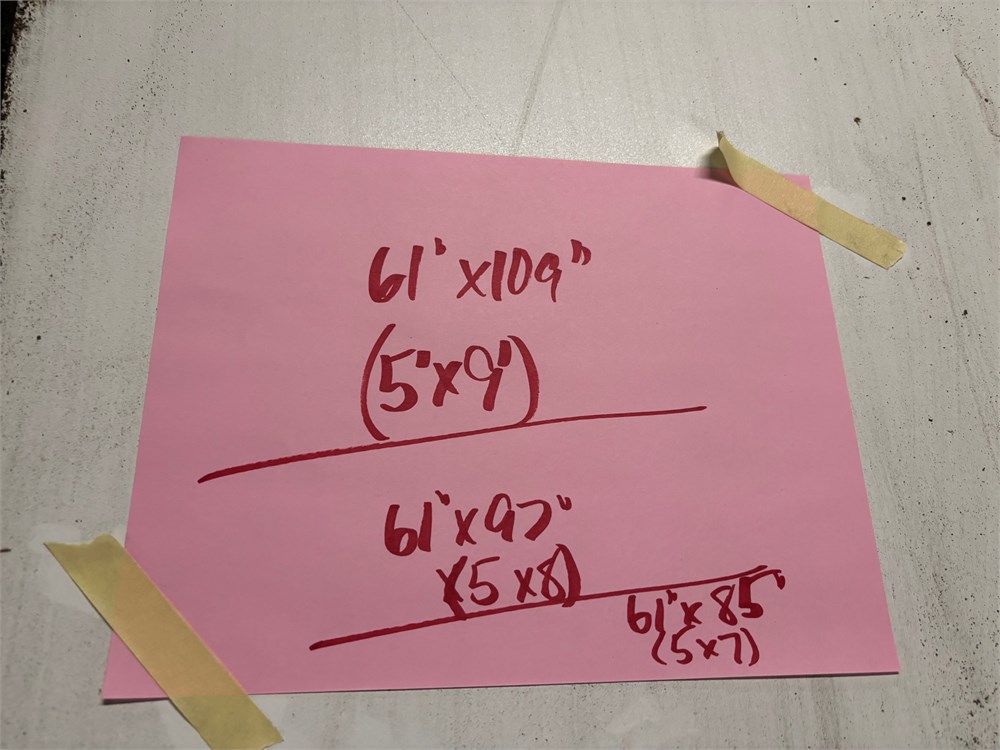 61" x109"
(5'x9')
61" x97"
(5 x8)
61" x 85"
(5x7)